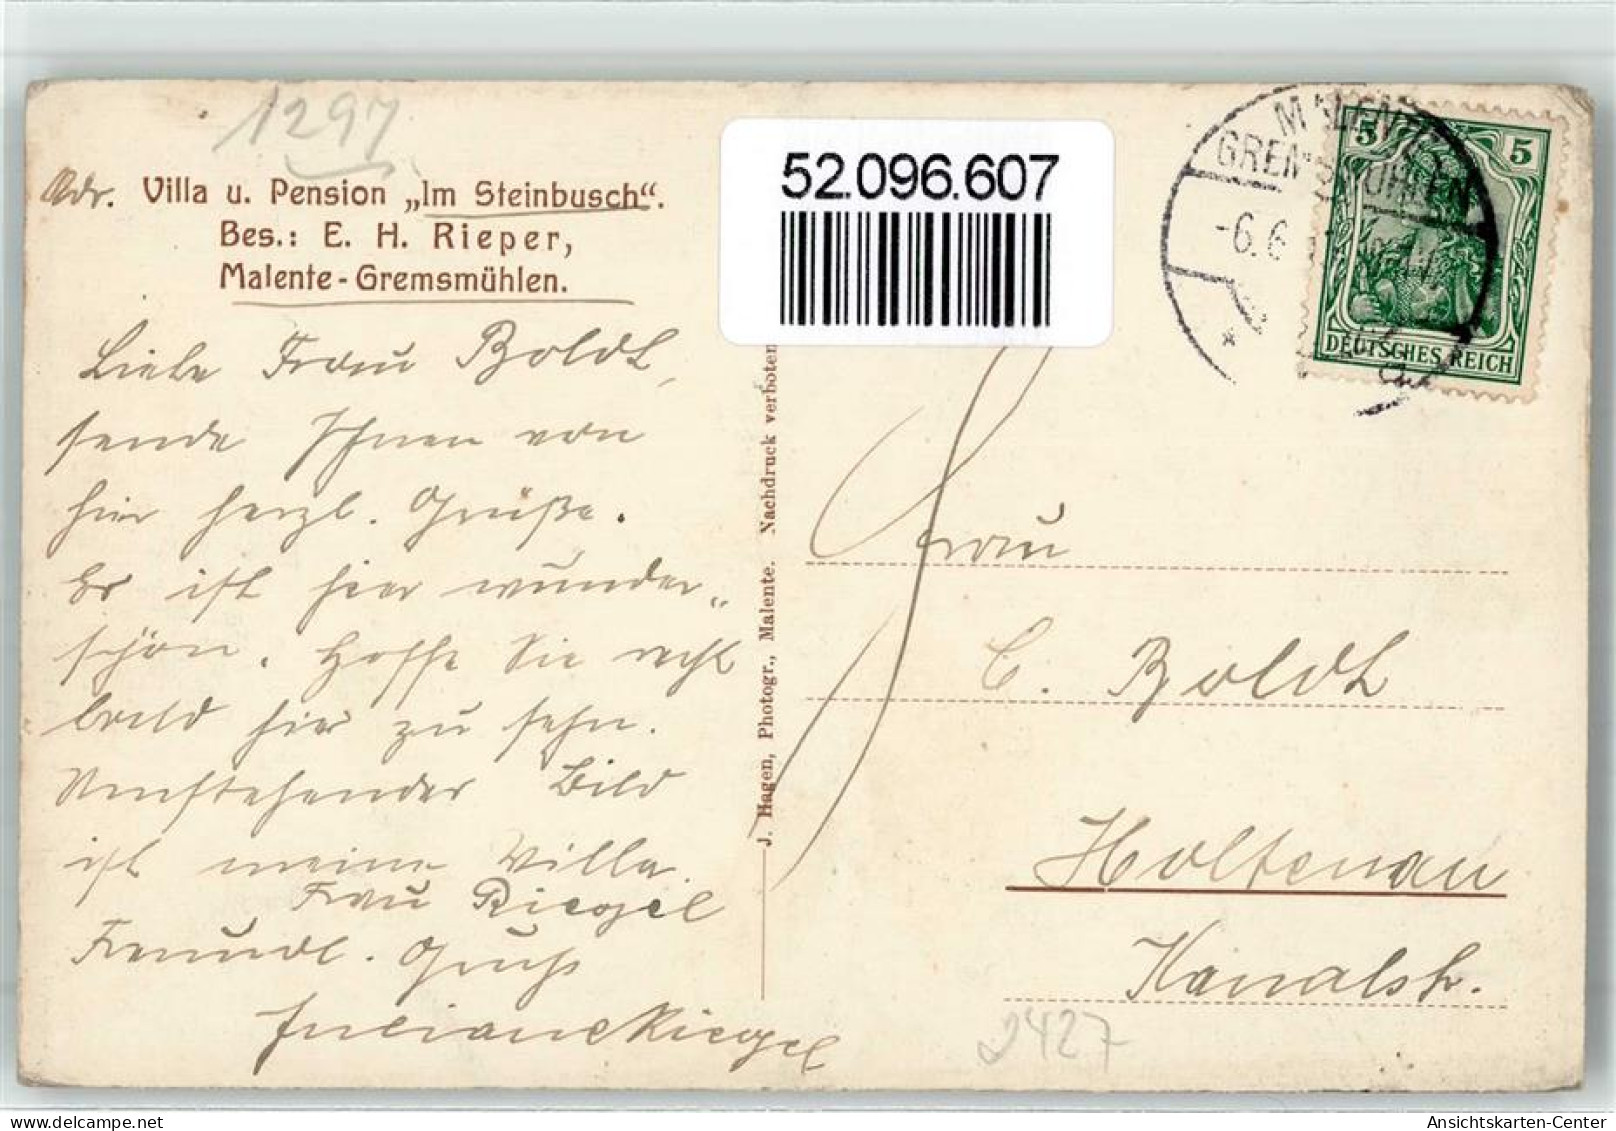 1297
Adr. Villa u. Pension „Im Steinbusch“.
Bes.: E. H. Rieper,
Malente-Gremsmühlen.
Liebe Frau Boldt,
sende Ihnen von
hier herzl. Grüße.
Es ist hier wunder„
schön. Hoffe Sie recht
bald hier zu sehn.
Umstehendes Bild
ist meine Villa.
Frau Riegel
Freundl. Gruß
Juliane Riegel
J. Hagen, Photogr., Malente. Nachdruck verboten
52.096.607
MALENTE
GREMSMÜHLEN
-6.6
5 5
DEUTSCHES REICH
Frau
C. Boldt
Holtenau
Kanalstr.
2427
delcampe.net
Ansichtskarten-Center